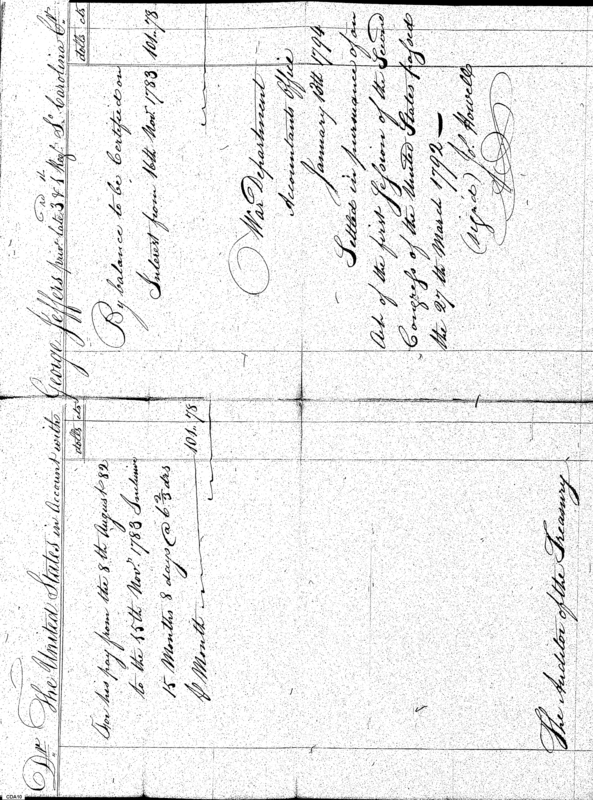 Dr. The United States in Account with George Jeffers priv. late 3d & 1st Regt. So. Carolina Cr.
dolls cts
For his pay from the 8th August 82
to the 15th Novr. 1783 Inclusive
15 Months 8 days @ 6 2/3 drs
⅌ Month 101.78
The Auditor of the Treasury
dolls cts
By balance to be Certified on
Interest from 16th Novr. 1783 101.78
War Department
Accountants Office
January 13th 1794
Settled in pursuance of an
Act of the first Session of the Second
Congress of the United States passed
the 27th March 1792 —
(sign'd) J. Howell
CDA10